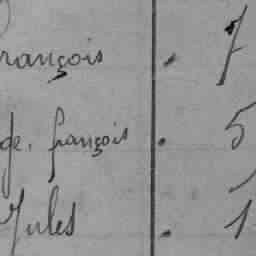 rançois . 7
ge, françois . 5
Jules . 1